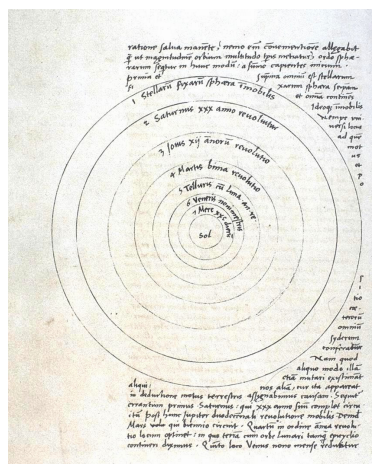 ratione salua manẽte: nemo em̃ conuenientiorẽ allegabit
q̃ ut magnitudinẽ orbium multitudo tp̃is metiatur: ordo sphæ-
rarum sequitur in hunc modũ: a summo capientes initium.
prima et suprema omniũ est stellarum
fixarum sphæra seipsam
et omnia continens
Ideoq; immobilis
nempe uni
uersi locus
ad que
mot
us
et
p
o
1 Stellarũ fixarũ sphæra immobilis
2 Saturnus xxx anno reuoluitur
3 Jouis xij annorũ reuolutio
4 Martis bima reuolutio
5 Telluris cũ luna an. re.
6 Veneris nonimestris
7 Merc xxc dierũ
Sol
tio
terorũ
omniũ
syderum
conferantur
Nam quod
aliquo modo illã
etiã mutari existimãt
aliqui: nos aliã, cur ita appareat
in deductione motus terrestris assignabimus causam. Sequitur
errantium primus Saturnus: qui xxx anno suũ complet circu
itũ Post hunc Jupiter duodecennali reuolutione mobilis Deinde
Mars qui biennio circuit. Quartũ in ordine annua reuolu
tio locum optinet: in qua terra cum orbe lunari tanq̃ epicyclo
contineri diximus. Quinto loco Venus nono mense reducitur